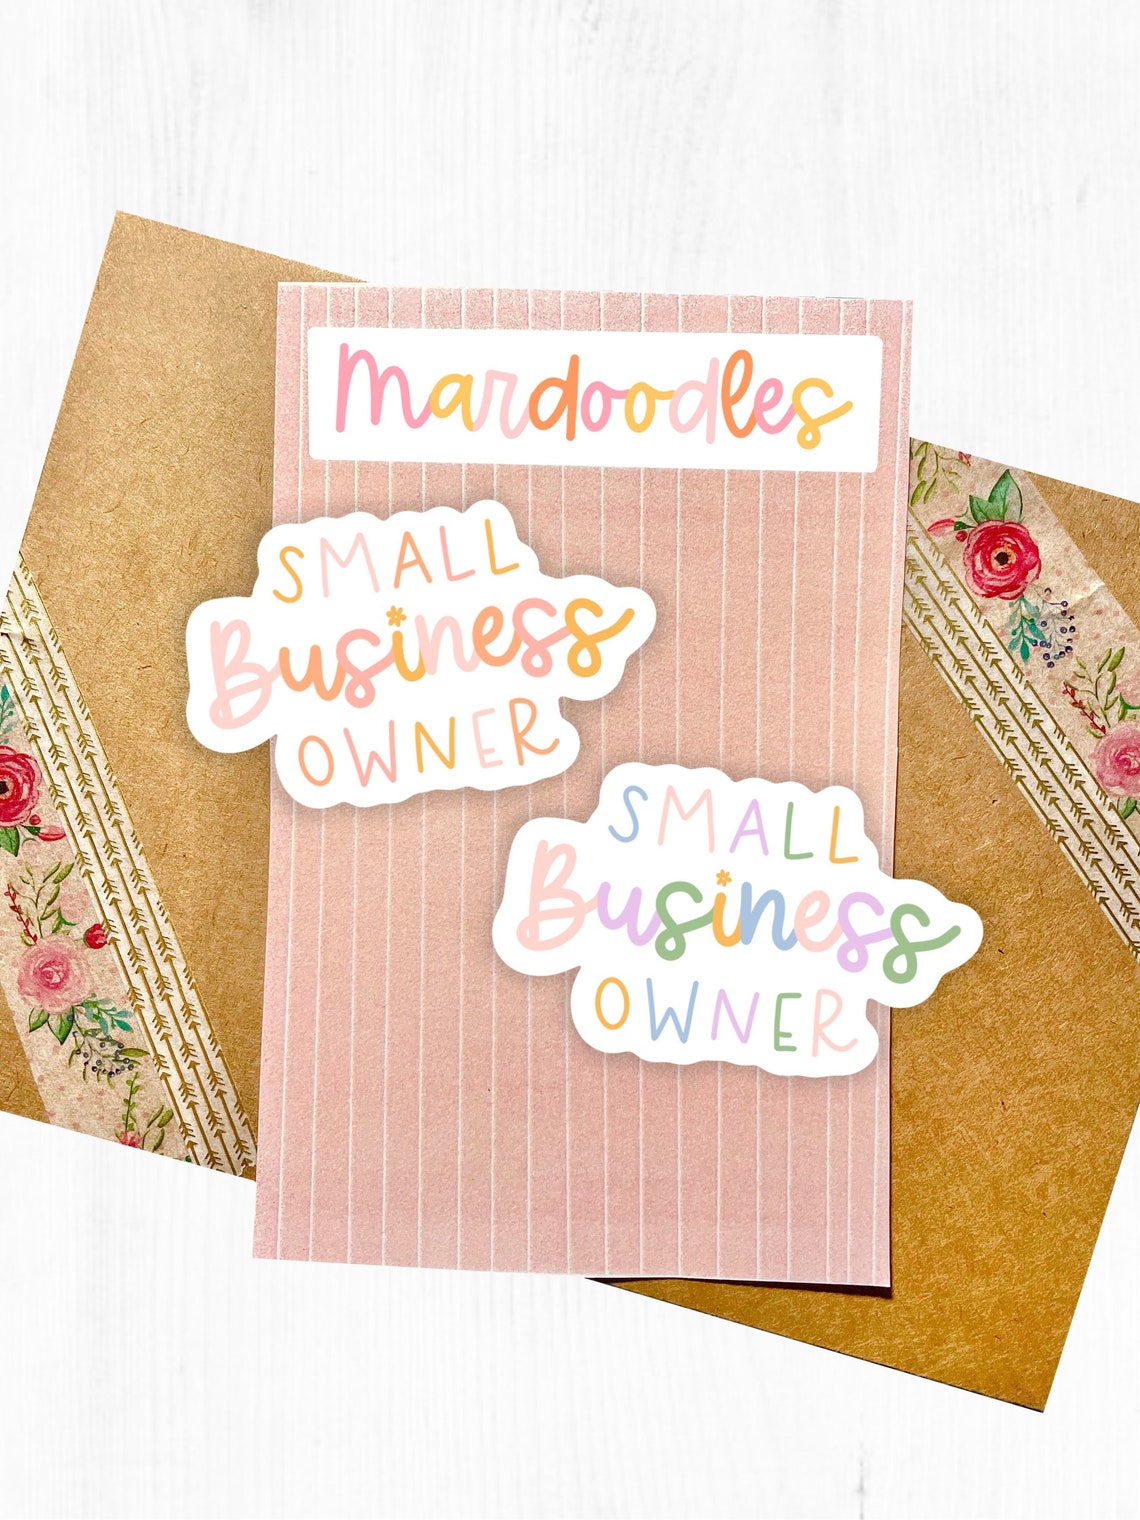 Mardoodles
SMALL
Business
OWNER
SMALL
Business
OWNER